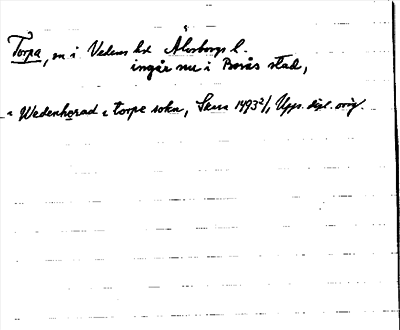 Torpa, sn i Vedens hd Älvsborgs l.
ingår nu i Borås stad,
i Wedenhærad i torpe sokn, Skara 1493 2/1 Upps. dipl. orig.